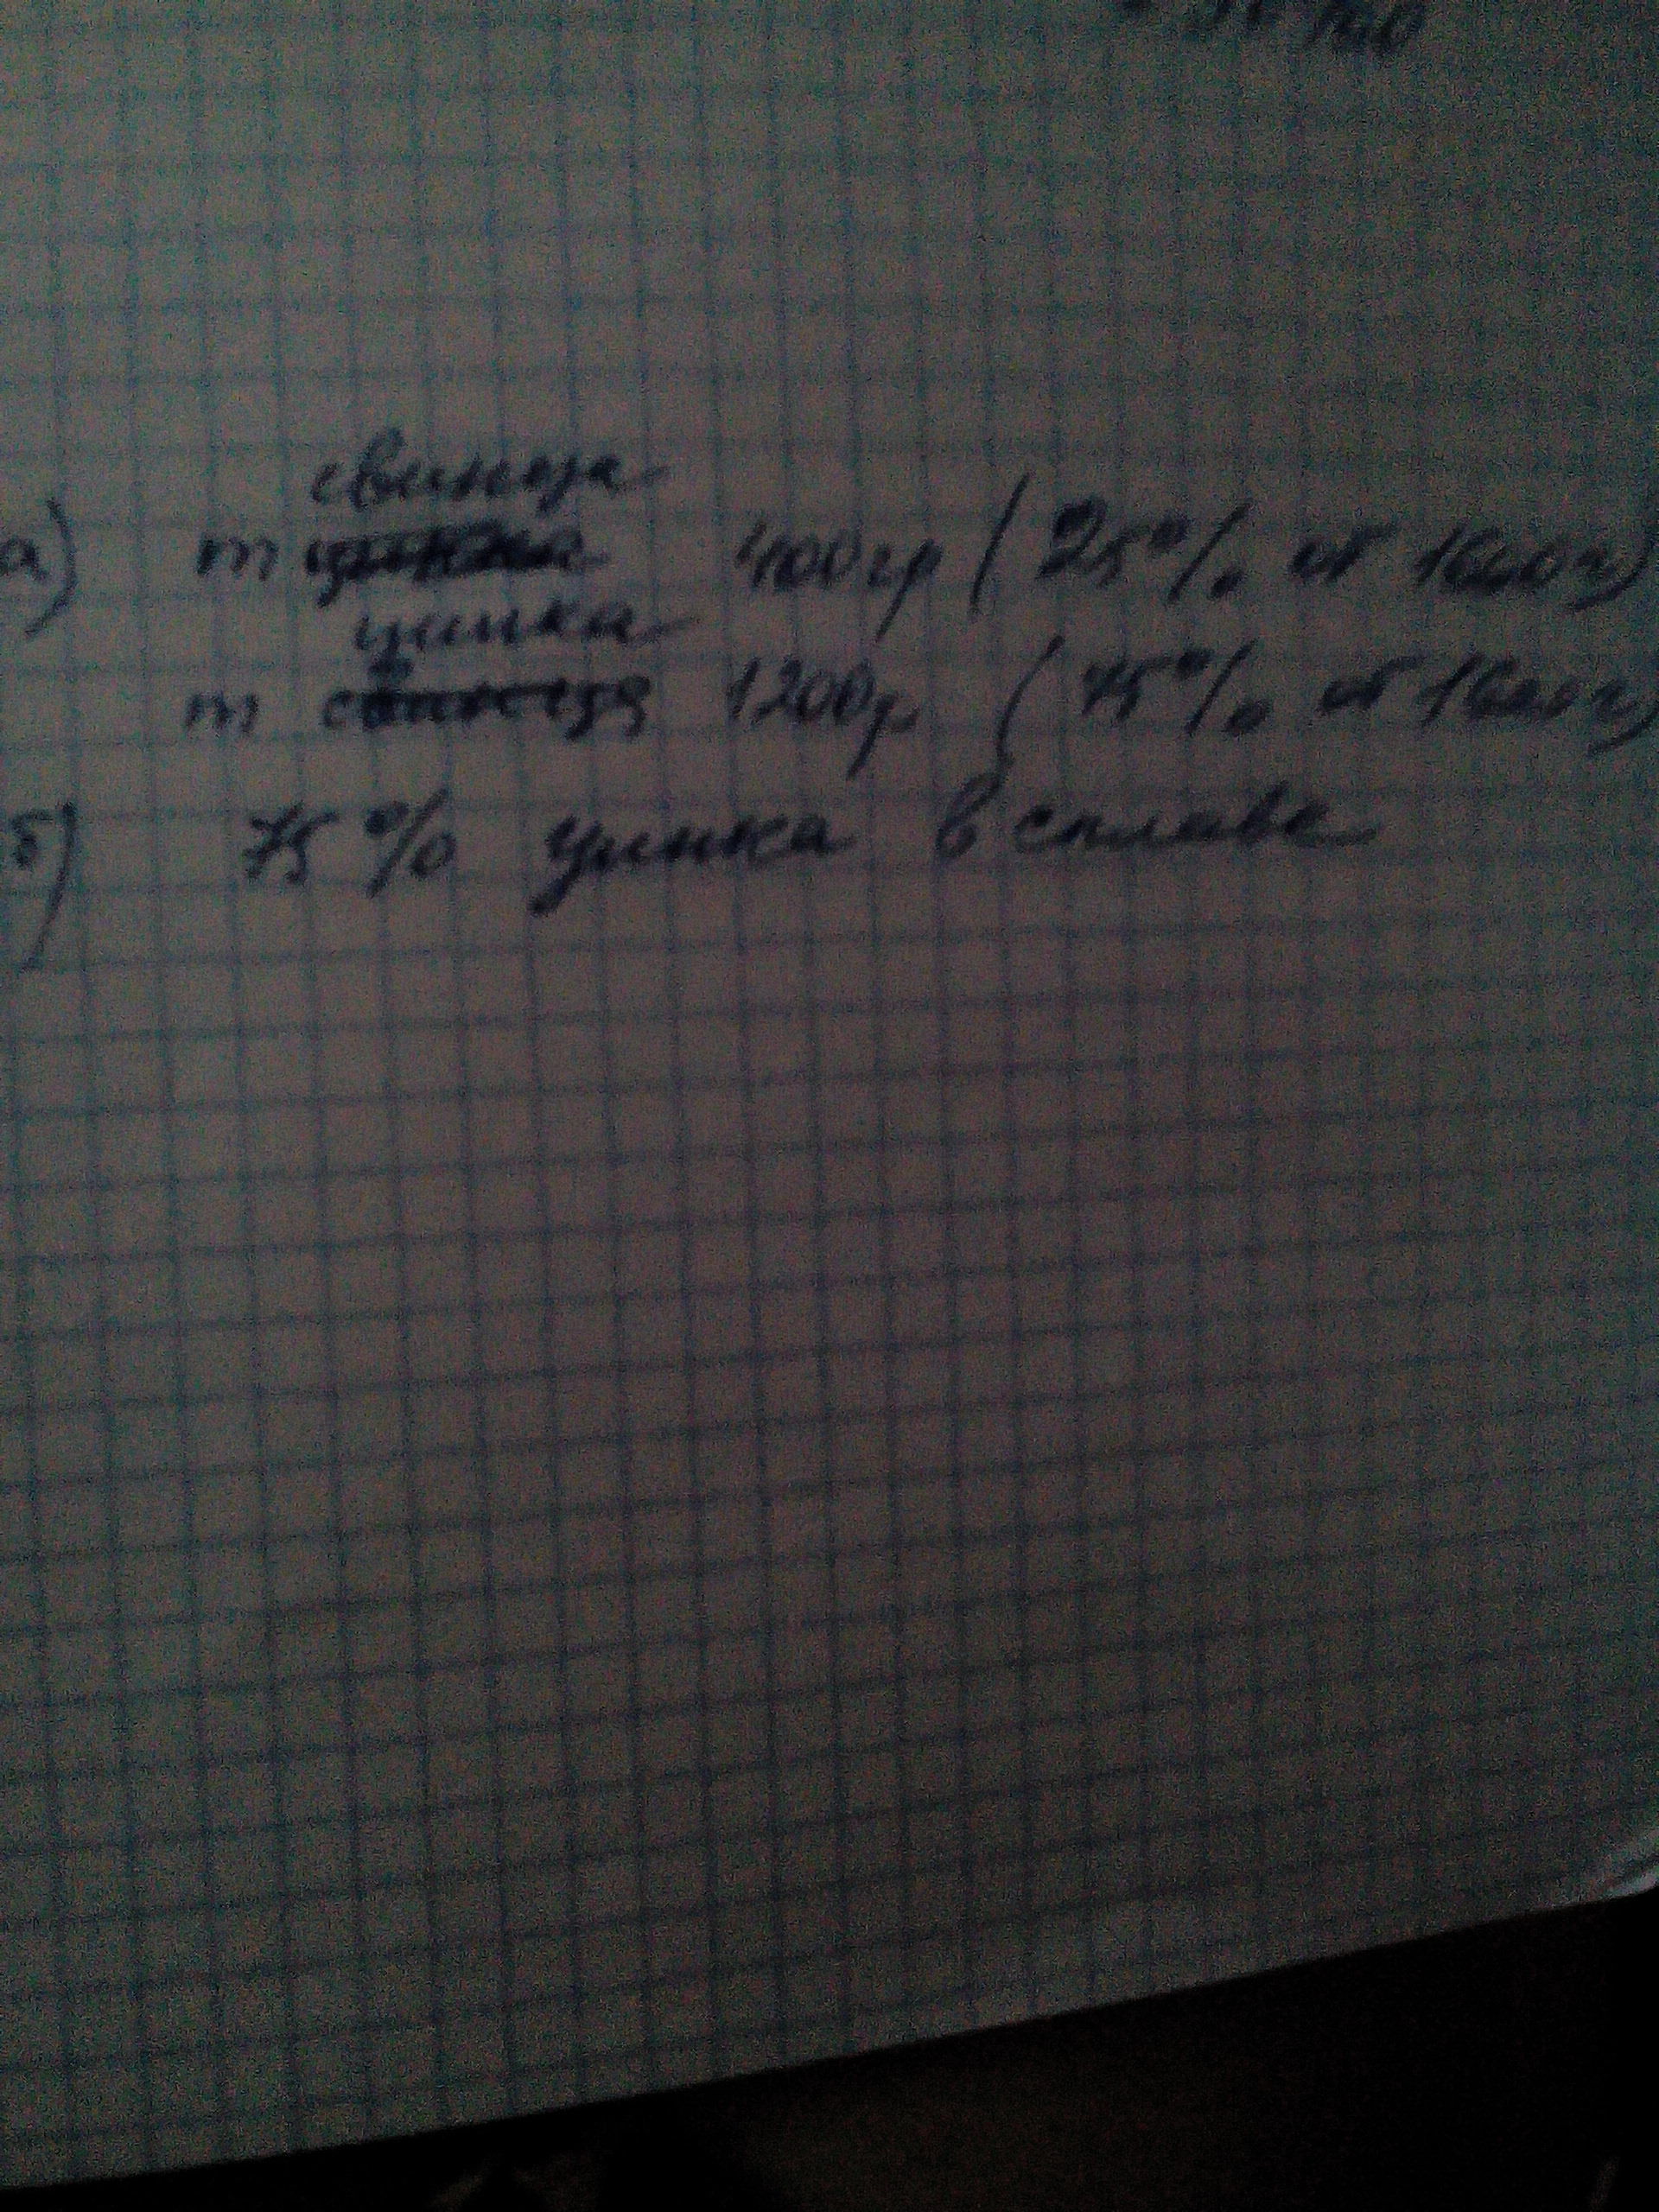 свинца
а) m цинка 400гр (25% от 1600г)
цинка
m свинца 1200р (75% от 1600г)
б) 75% цинка в сплаве